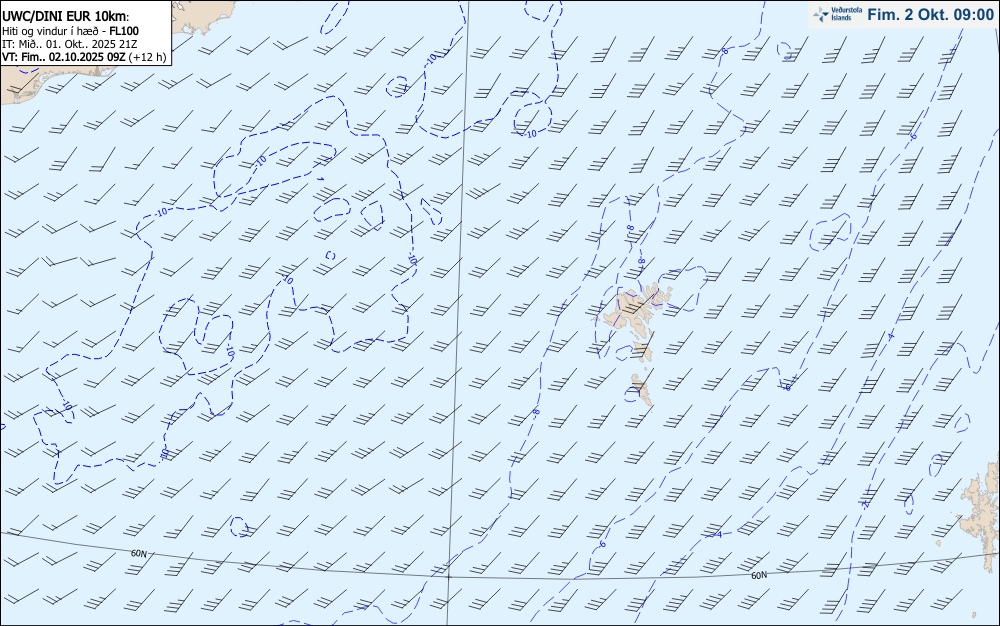 UWC/DINI EUR 10km:
Hiti og vindur í hæð - FL100
IT: Mið.. 01. Okt.. 2025 21Z
VT: Fim.. 02.10.2025 09Z (+12 h)
Veðurstofa
Íslands
Fim. 2 Okt. 09:00
-10
-8
-10
-6
-10
-10
-8
-10
-8
-10
-4
-10
-6
-10
-8
-10
-2
-4
-6
60N
60N